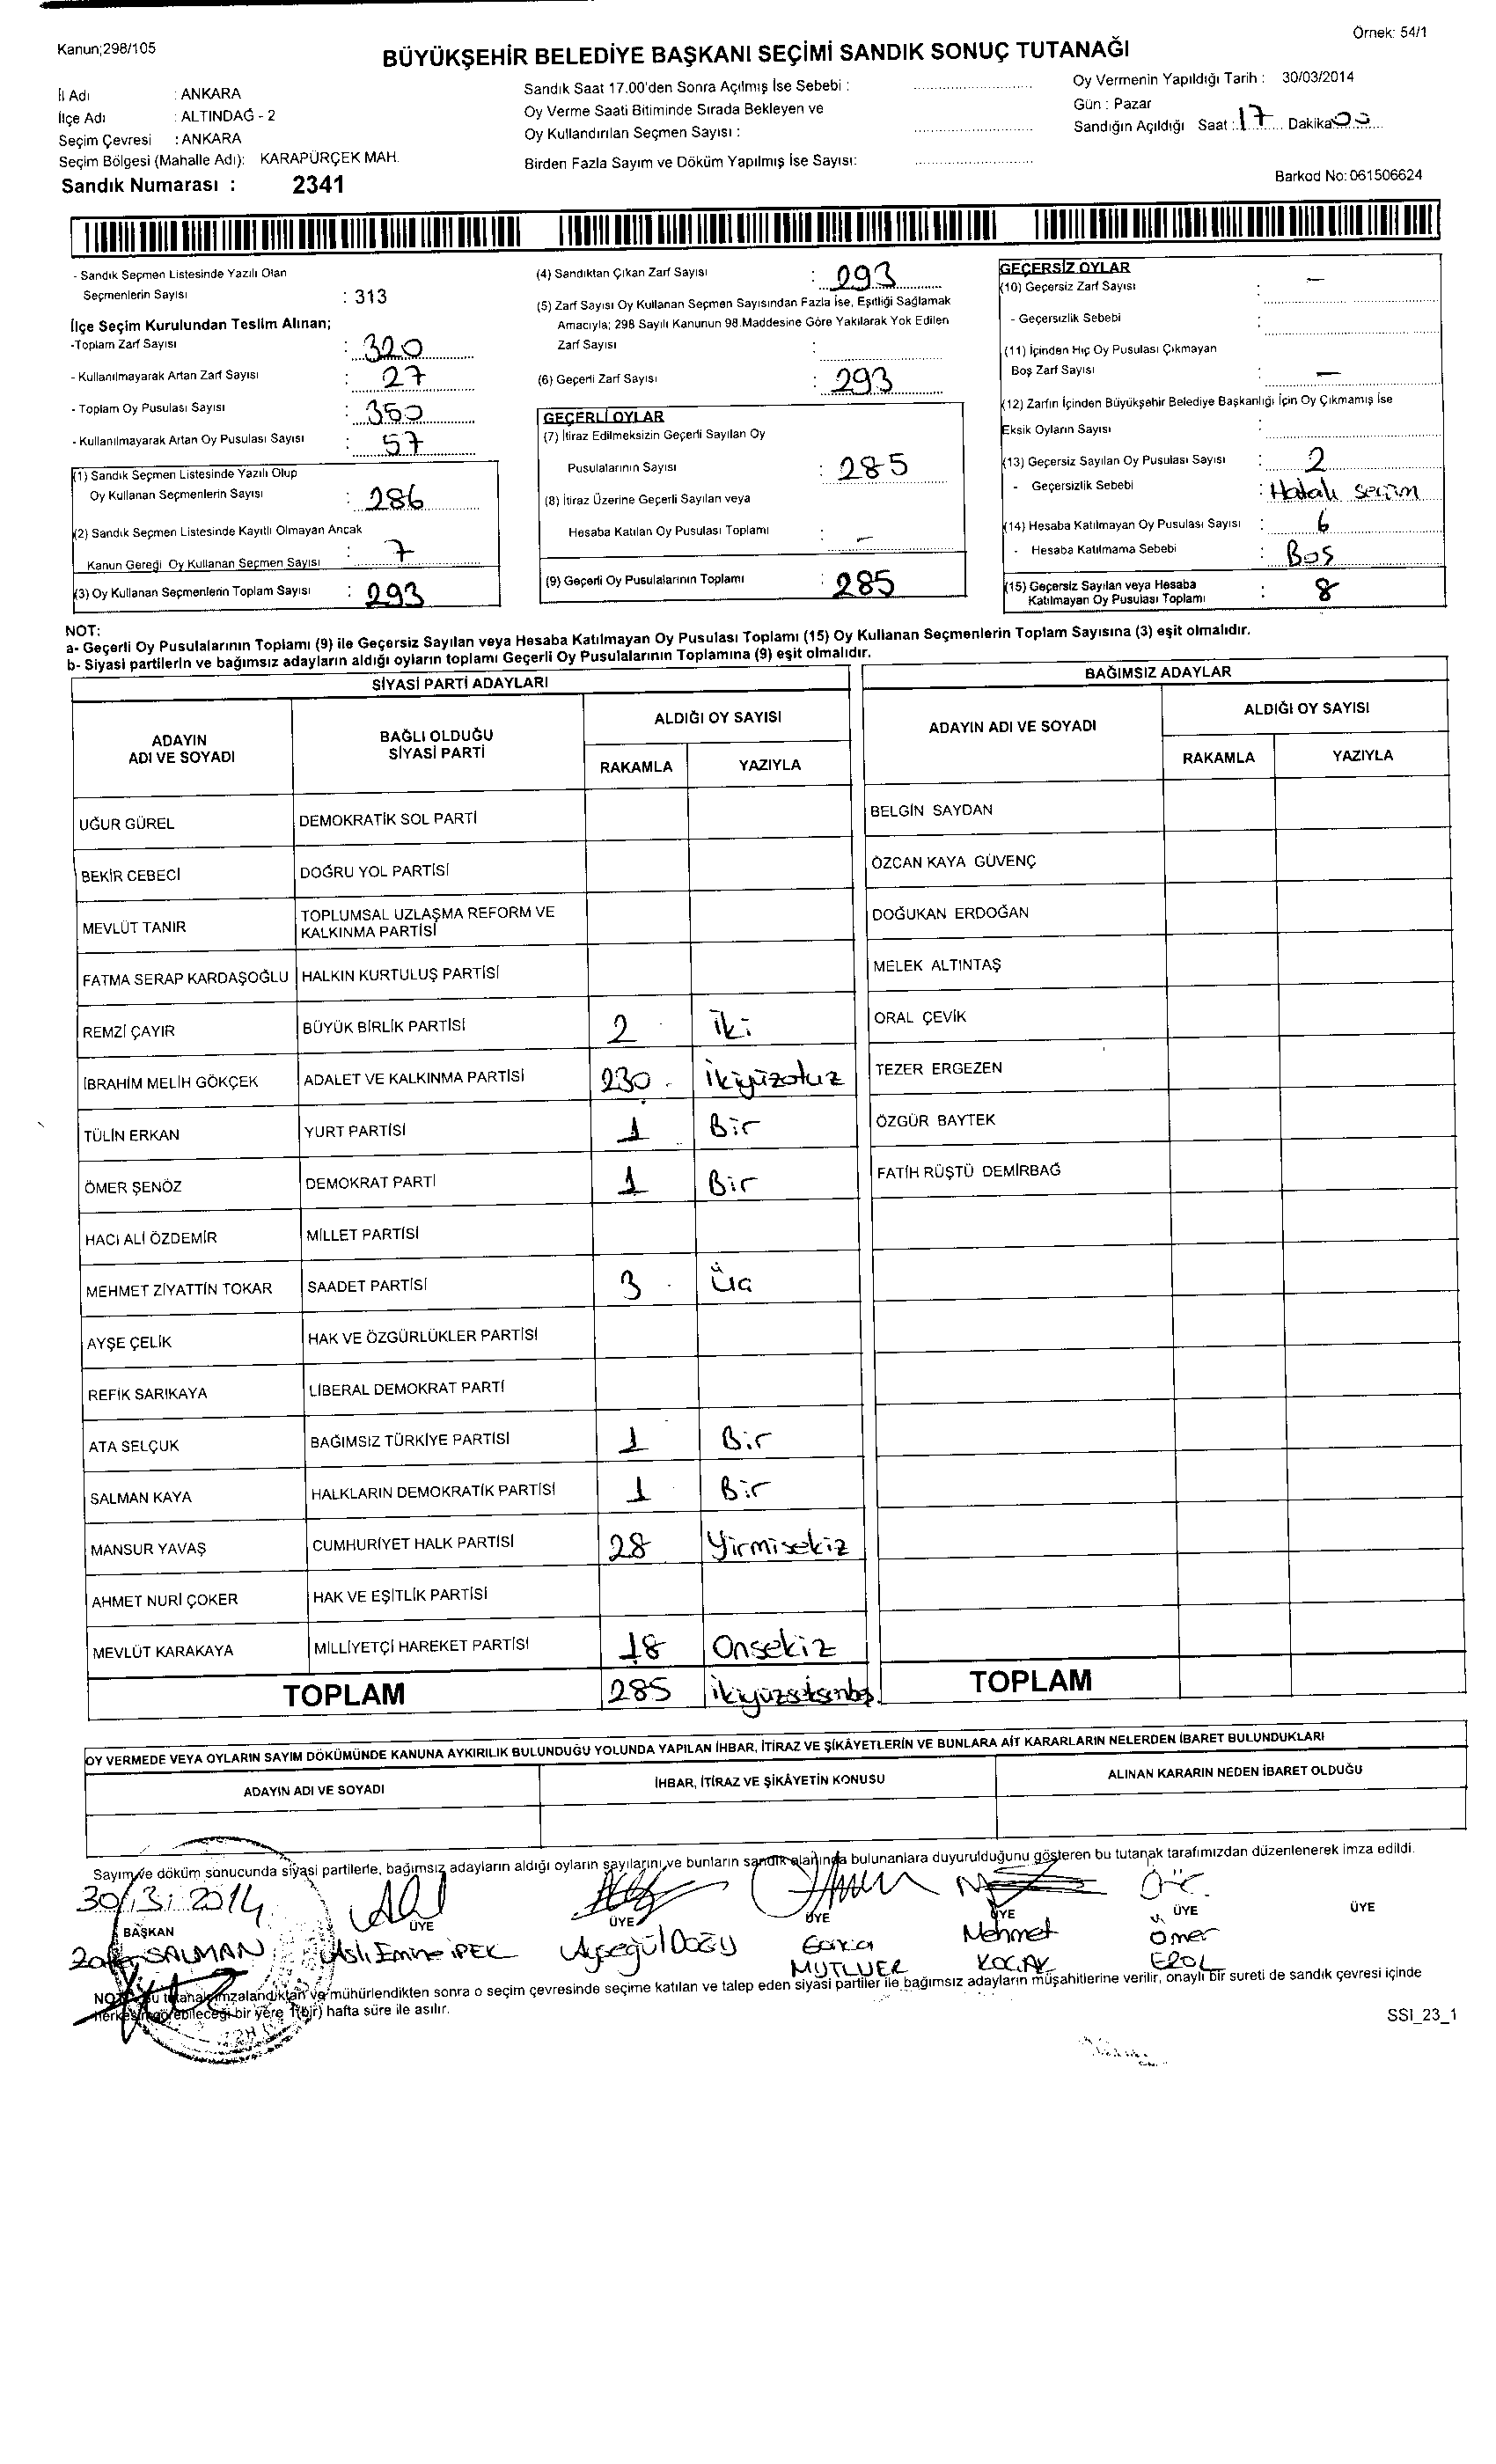 Kanun;298/105
Örnek: 54/1
BÜYÜKŞEHİR BELEDİYE BAŞKANI SEÇİMİ SANDIK SONUÇ TUTANAĞI
İl Adı : ANKARA
İlçe Adı : ALTINDAĞ - 2
Seçim Çevresi : ANKARA
Seçim Bölgesi (Mahalle Adı): KARAPÜRÇEK MAH.
Sandık Numarası : 2341
Sandık Saat 17.00'den Sonra Açılmış İse Sebebi :
Oy Verme Saati Bitiminde Sırada Bekleyen ve
Oy Kullandırılan Seçmen Sayısı :
Birden Fazla Sayım ve Döküm Yapılmış İse Sayısı:
Oy Vermenin Yapıldığı Tarih : 30/03/2014
Gün : Pazar
Sandığın Açıldığı Saat : 17 Dakika 00
Barkod No: 061506624
- Sandık Seçmen Listesinde Yazılı Olan
Seçmenlerin Sayısı : 313
İlçe Seçim Kurulundan Teslim Alınan;
-Toplam Zarf Sayısı : 320
- Kullanılmayarak Artan Zarf Sayısı : 27
- Toplam Oy Pusulası Sayısı : 350
- Kullanılmayarak Artan Oy Pusulası Sayısı : 57
(1) Sandık Seçmen Listesinde Yazılı Olup
Oy Kullanan Seçmenlerin Sayısı : 286
(2) Sandık Seçmen Listesinde Kayıtlı Olmayan Ancak
Kanun Gereği Oy Kullanan Seçmen Sayısı : 7
(3) Oy Kullanan Seçmenlerin Toplam Sayısı : 293
(4) Sandıktan Çıkan Zarf Sayısı : 293
(5) Zarf Sayısı Oy Kullanan Seçmen Sayısından Fazla İse, Eşitliği Sağlamak
Amacıyla; 298 Sayılı Kanunun 98.Maddesine Göre Yakılarak Yok Edilen
Zarf Sayısı :
(6) Geçerli Zarf Sayısı : 293
GEÇERLİ OYLAR
(7) İtiraz Edilmeksizin Geçerli Sayılan Oy
Pusulalarının Sayısı : 285
(8) İtiraz Üzerine Geçerli Sayılan veya
Hesaba Katılan Oy Pusulası Toplamı : —
(9) Geçerli Oy Pusulalarının Toplamı : 285
GEÇERSİZ OYLAR
(10) Geçersiz Zarf Sayısı : —
- Geçersizlik Sebebi :
(11) İçinden Hiç Oy Pusulası Çıkmayan
Boş Zarf Sayısı : —
(12) Zarfın İçinden Büyükşehir Belediye Başkanlığı İçin Oy Çıkmamış İse
Eksik Oyların Sayısı :
(13) Geçersiz Sayılan Oy Pusulası Sayısı : 2
- Geçersizlik Sebebi : Hatalı seçim
(14) Hesaba Katılmayan Oy Pusulası Sayısı : 6
- Hesaba Katılmama Sebebi : Boş
(15) Geçersiz Sayılan veya Hesaba
Katılmayan Oy Pusulası Toplamı : 8
NOT:
a- Geçerli Oy Pusulalarının Toplamı (9) ile Geçersiz Sayılan veya Hesaba Katılmayan Oy Pusulası Toplamı (15) Oy Kullanan Seçmenlerin Toplam Sayısına (3) eşit olmalıdır.
b- Siyasi partilerin ve bağımsız adayların aldığı oyların toplamı Geçerli Oy Pusulalarının Toplamına (9) eşit olmalıdır.
SİYASİ PARTİ ADAYLARI
ADAYIN ADI VE SOYADI
BAĞLI OLDUĞU SİYASİ PARTİ
ALDIĞI OY SAYISI
RAKAMLA YAZIYLA
UĞUR GÜREL DEMOKRATİK SOL PARTİ
BEKİR CEBECİ DOĞRU YOL PARTİSİ
MEVLÜT TANIR TOPLUMSAL UZLAŞMA REFORM VE KALKINMA PARTİSİ
FATMA SERAP KARDAŞOĞLU HALKIN KURTULUŞ PARTİSİ
REMZİ ÇAYIR BÜYÜK BİRLİK PARTİSİ 2 İki
İBRAHİM MELİH GÖKÇEK ADALET VE KALKINMA PARTİSİ 230 İkiyüzotuz
TÜLİN ERKAN YURT PARTİSİ 1 Bir
ÖMER ŞENÖZ DEMOKRAT PARTİ 1 Bir
HACI ALİ ÖZDEMİR MİLLET PARTİSİ
MEHMET ZİYATTİN TOKAR SAADET PARTİSİ 3 Üç
AYŞE ÇELİK HAK VE ÖZGÜRLÜKLER PARTİSİ
REFİK SARIKAYA LİBERAL DEMOKRAT PARTİ
ATA SELÇUK BAĞIMSIZ TÜRKİYE PARTİSİ 1 Bir
SALMAN KAYA HALKLARIN DEMOKRATİK PARTİSİ 1 Bir
MANSUR YAVAŞ CUMHURİYET HALK PARTİSİ 28 Yirmisekiz
AHMET NURİ ÇOKER HAK VE EŞİTLİK PARTİSİ
MEVLÜT KARAKAYA MİLLİYETÇİ HAREKET PARTİSİ 18 Onsekiz
TOPLAM 285 İkiyüzseksenbeş
BAĞIMSIZ ADAYLAR
ADAYIN ADI VE SOYADI
ALDIĞI OY SAYISI
RAKAMLA YAZIYLA
BELGİN SAYDAN
ÖZCAN KAYA GÜVENÇ
DOĞUKAN ERDOĞAN
MELEK ALTINTAŞ
ORAL ÇEVİK
TEZER ERGEZEN
ÖZGÜR BAYTEK
FATİH RÜŞTÜ DEMİRBAĞ
TOPLAM
OY VERMEDE VEYA OYLARIN SAYIM DÖKÜMÜNDE KANUNA AYKIRILIK BULUNDUĞU YOLUNDA YAPILAN İHBAR, İTİRAZ VE ŞİKÂYETLERİN VE BUNLARA AİT KARARLARIN NELERDEN İBARET BULUNDUKLARI
ADAYIN ADI VE SOYADI
İHBAR, İTİRAZ VE ŞİKÂYETİN KONUSU
ALINAN KARARIN NEDEN İBARET OLDUĞU
Sayım ve döküm sonucunda siyasi partilerle, bağımsız adayların aldığı oyların sayılarını ve bunların sandık alanında bulunanlara duyurulduğunu gösteren bu tutanak tarafımızdan düzenlenerek imza edildi.
30/3/2014
BAŞKAN ÜYE ÜYE ÜYE ÜYE ÜYE ÜYE
SALMAN Aslı Emine İPEK Ayşegül DOĞU MUTLUER Mehmet KOÇAK Ömer EROL
NOT: İşbu tutanak imzalandıktan ve mühürlendikten sonra o seçim çevresinde seçime katılan ve talep eden siyasi partiler ile bağımsız adayların müşahitlerine verilir, onaylı bir sureti de sandık çevresi içinde
herkesin görebileceği bir yere 1(bir) hafta süre ile asılır.
SSI_23_1